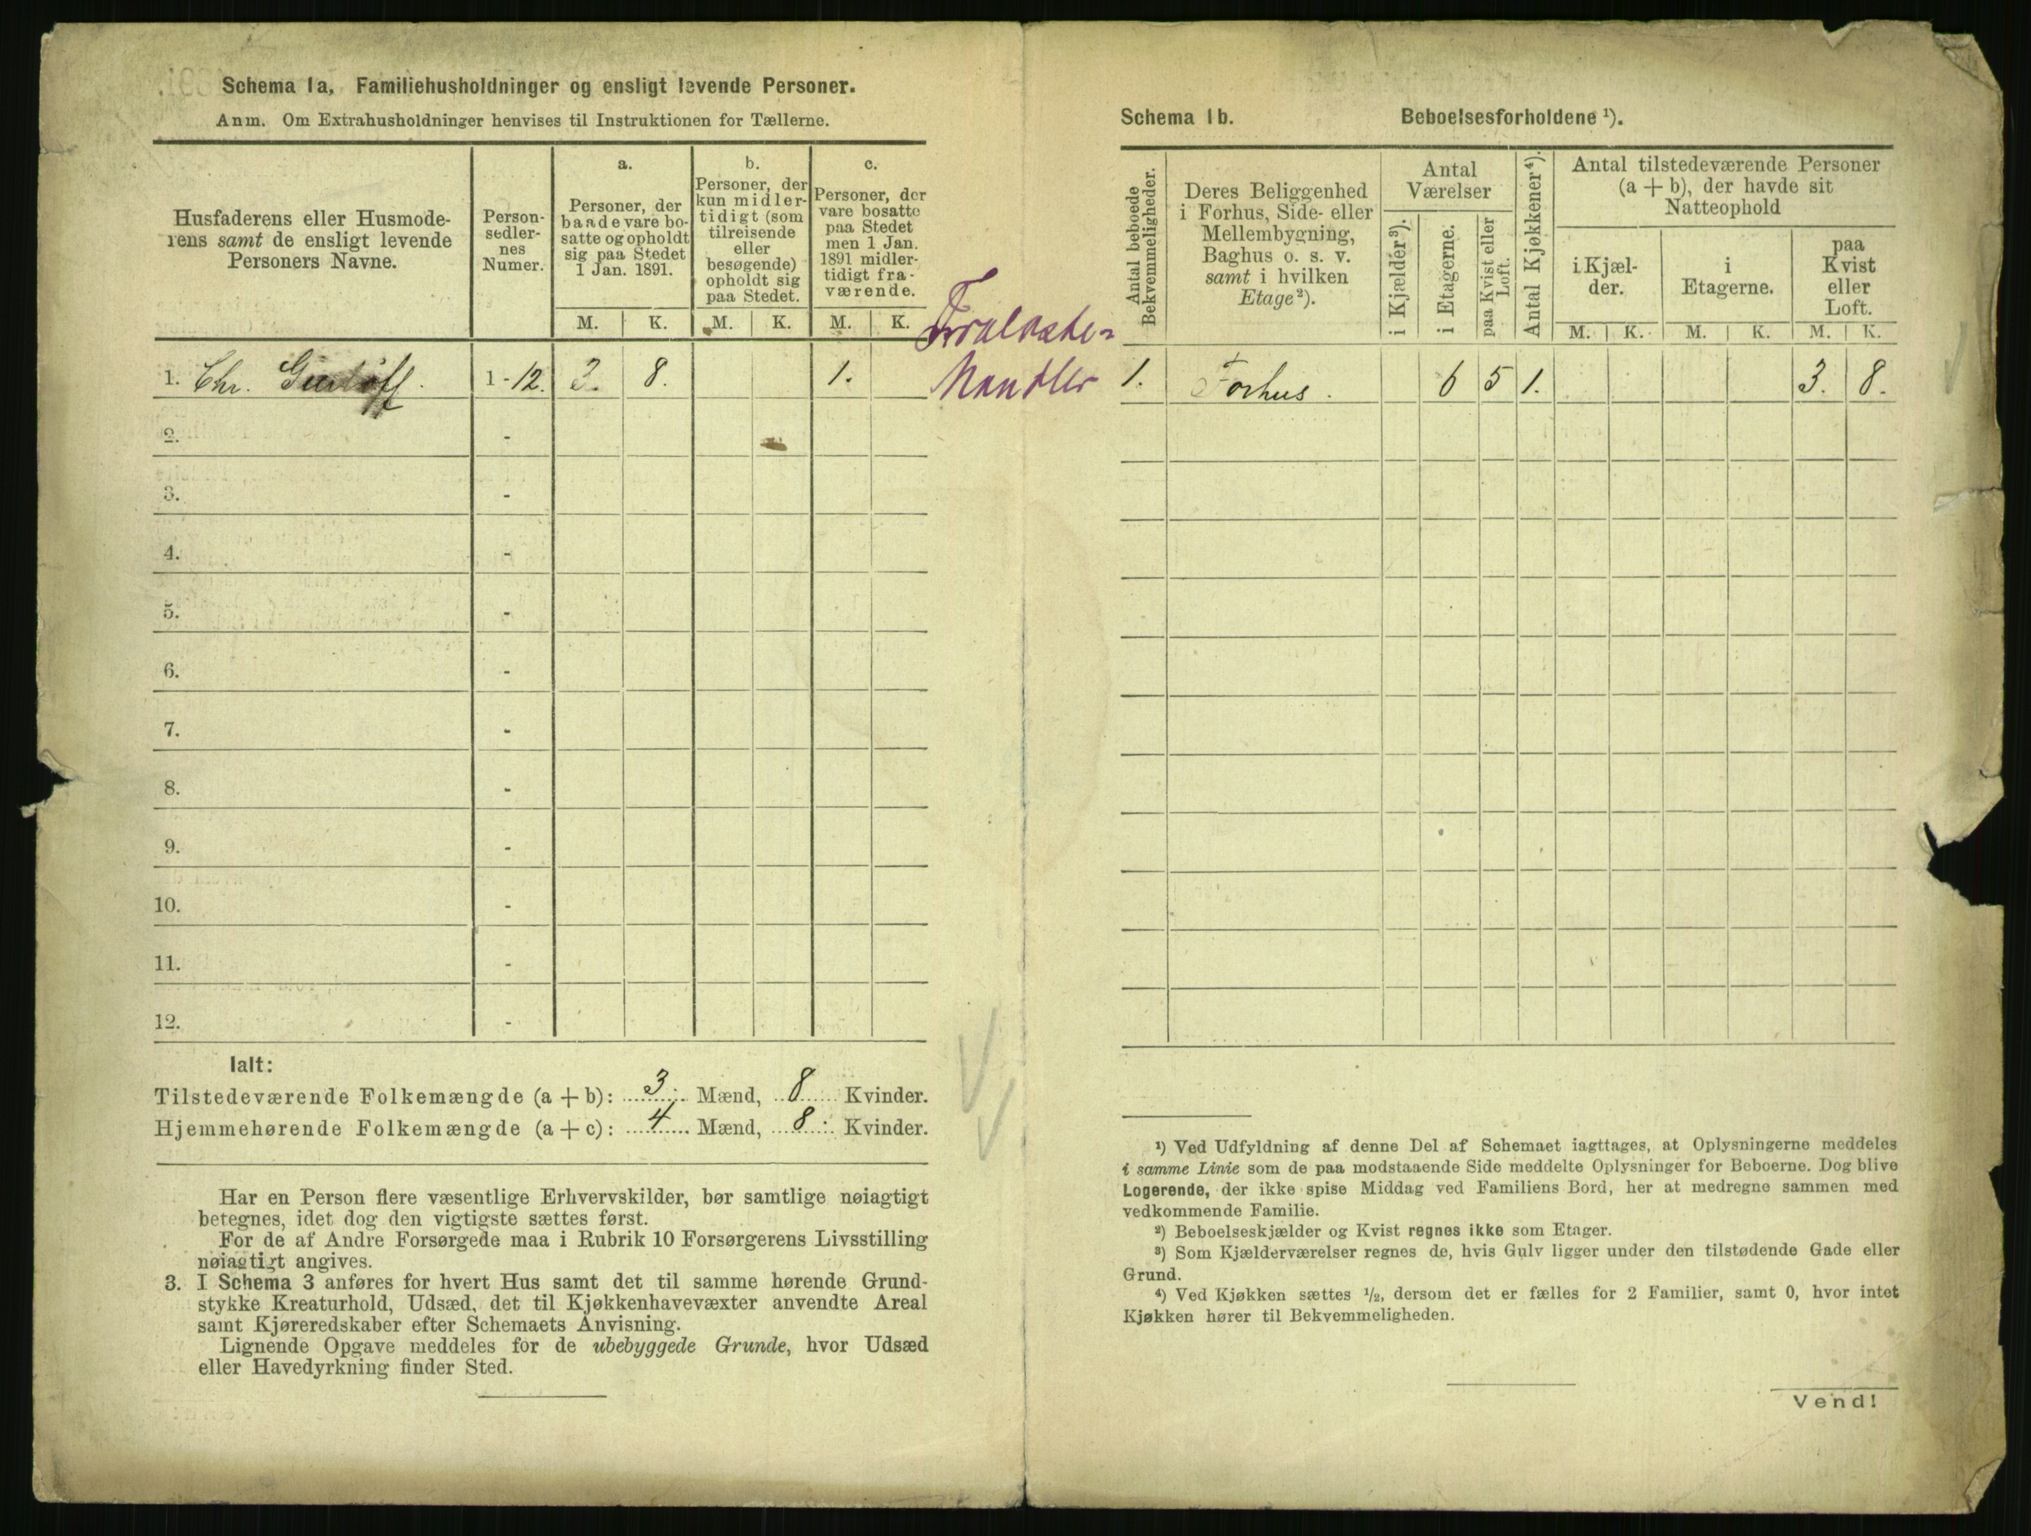 Schema 1a, Familiehusholdninger og ensligt levende Personer.
Anm. Om Extrahusholdninger henvises til Instruktionen for Tællerne.
Husfaderens eller Husmode-
rens samt de ensligt levende
Personers Navne.
Person-
sedler-
nes
Numer.
a.
Personer, der
baade vare bo-
satte og opholdt
sig paa Stedet
1 Jan. 1891.
b.
Personer, der
kun midler-
tidigt (som
tilreisende
eller
besøgende)
opholdt sig
paa Stedet.
c.
Personer, der
vare bosatte
paa Stedet
men 1 Jan.
1891 midler-
tidigt fra-
værende.
M. K. M. K. M. K.
1. Chr. 1-12. 3. 8. 1.
2. -
3. -
4. -
5. -
6. -
7. -
8. -
9. -
10. -
11. -
12. -
Ialt:
Tilstedeværende Folkemængde (a + b): 3. Mænd, 8 Kvinder.
Hjemmehørende Folkemængde (a + c): 4 Mænd, 8. Kvinder.
Har en Person flere væsentlige Erhvervskilder, bør samtlige nøiagtigt
betegnes, idet dog den vigtigste sættes først.
For de af Andre Forsørgede maa i Rubrik 10 Forsørgerens Livsstilling
nøiagtigt angives.
3. I Schema 3 anføres for hvert Hus samt det til samme hørende Grund-
stykke Kreaturhold, Udsæd, det til Kjøkkenhavevæxter anvendte Areal
samt Kjøreredskaber efter Schemaets Anvisning.
Lignende Opgave meddeles for de ubebyggede Grunde, hvor Udsæd
eller Havedyrkning finder Sted.
Schema 1b. Beboelsesforholdene ¹).
Antal beboede
Bekvemmeligheder.
Deres Beliggenhed
i Forhus, Side- eller
Mellembygning,
Baghus o. s. v.
samt i hvilken
Etage²).
Antal
Værelser
i Kjælder³).
i Etagerne.
paa Kvist eller
Loft.
Antal Kjøkkener⁴).
Antal tilstedeværende Personer
(a + b), der havde sit
Natteophold
i Kjæl-
der.
i
Etagerne.
paa
Kvist
eller
Loft.
M. K. M. K. M. K.
1. Forhus. 6 5 1. 3. 8.
¹) Ved Udfyldning af denne Del af Schemaet iagttages, at Oplysningerne meddeles
i samme Linie som de paa modstaaende Side meddelte Oplysninger for Beboerne. Dog blive
Logerende, der ikke spise Middag ved Familiens Bord, her at medregne sammen med
vedkommende Familie.
²) Beboelseskjælder og Kvist regnes ikke som Etager.
³) Som Kjælderværelser regnes de, hvis Gulv ligger under den tilstødende Gade eller
Grund.
⁴) Ved Kjøkken sættes ½, dersom det er fælles for 2 Familier, samt 0, hvor intet
Kjøkken hører til Bekvemmeligheden.
Vend!